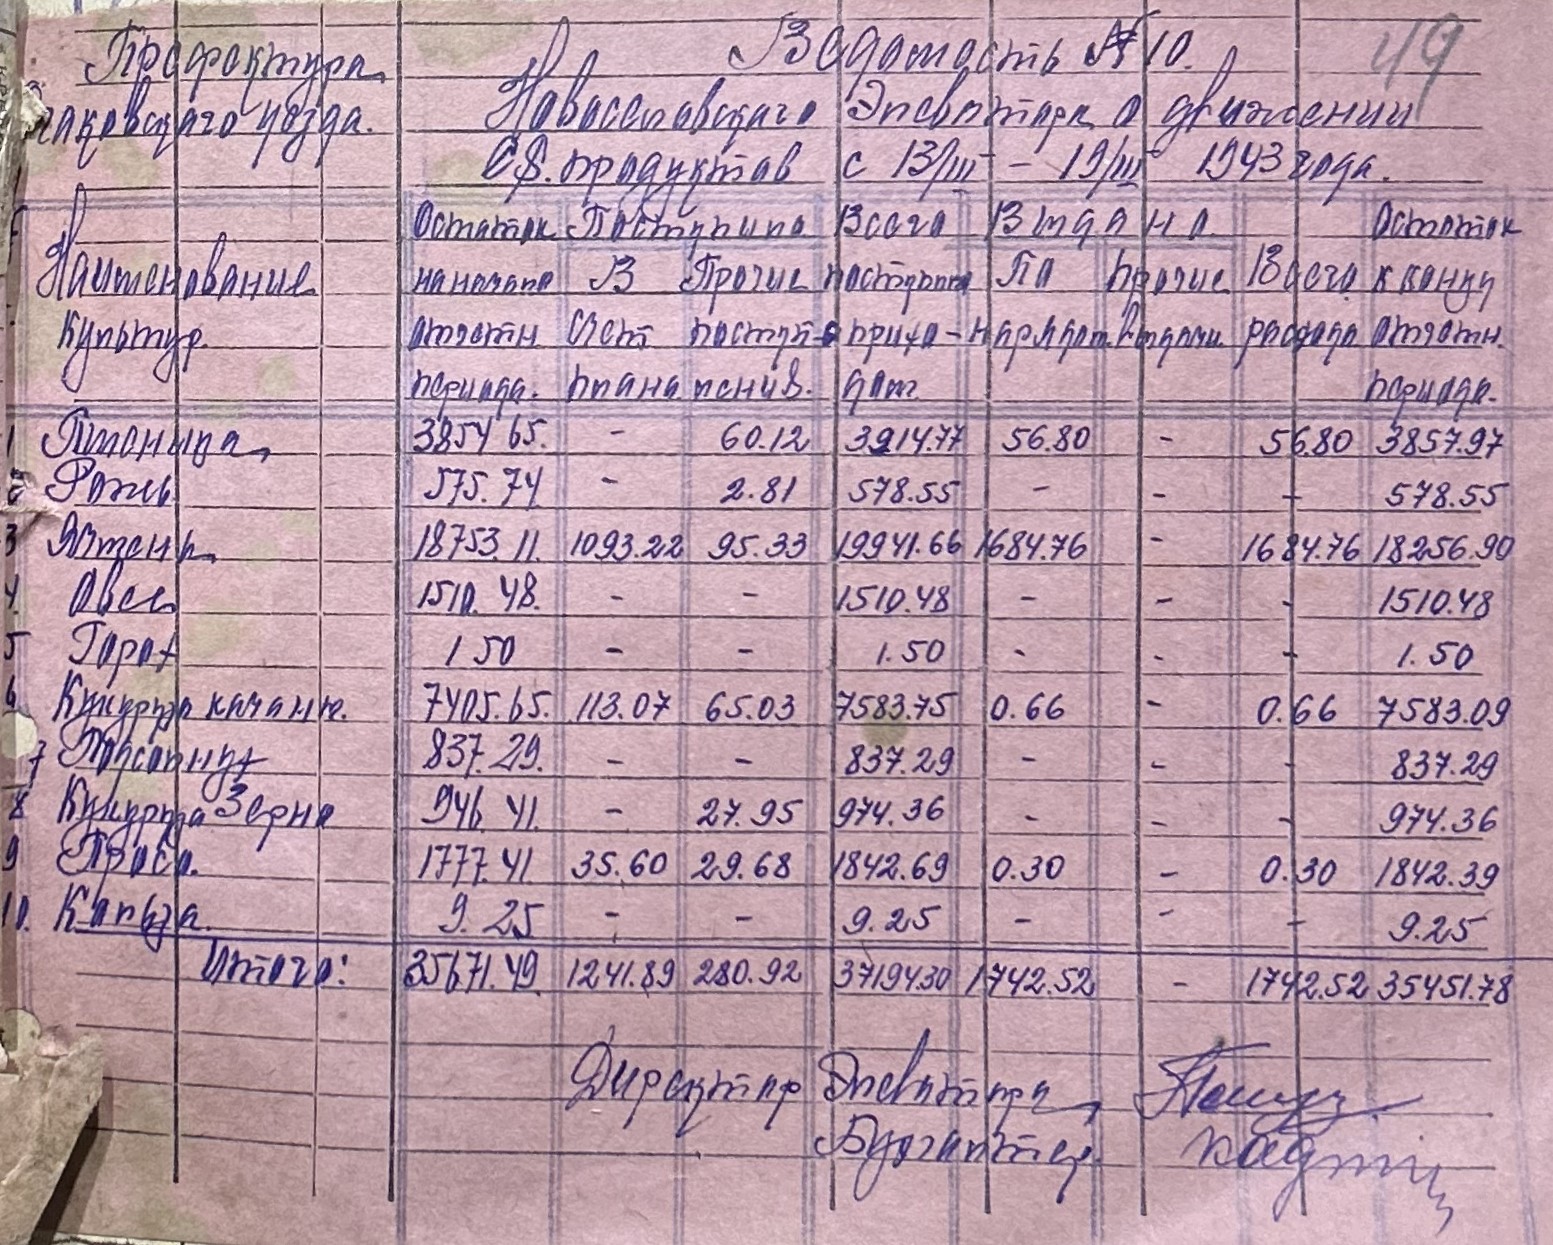 Префектура Ведомость № 10. 49
Очаковского уезда. Новоселовского Элеватора о движении
С/х. продуктов с 13/III – 19/III 1943 года.
Остаток Поступило Всего Выдано Остаток
Наименование на начало В Прочие поступило По прочие Всего к концу
Культур отчетн. Счет поступ- приходо- нарядам отдачи расхода отчетн.
периода. плана лений. дом периода.
1 Пшеница 3854 65. - 60.12 3914.77 56.80 - 56.80 3857.97
2 Рожь 575.74 - 2.81 578.55 - - - 578.55
3 Ячмень 18753.11. 1093.22 95.33 19941.66 1684.76 - 1684.76 18256.90
4. Овес 1510.48. - - 1510.48 - - - 1510.48
5 Горох 1 50 - - 1.50 - - - 1.50
6 Кукуруза качань. 7405.65. 113.07 65.03 7583.75 0.66 - 0.66 7583.09
7 Подсолнух 837.29. - - 837.29 - - - 837.29
8 Кукуруза Зерно 946.41. - 27.95 974.36 - - - 974.36
9 Просо. 1777.41 35.60 29.68 1842.69 0.30 - 0.30 1842.39
10. Кольза. 9.25 - - 9.25 - - - 9.25
Итого: 35671.49 1241.89 280.92 37194.30 1742.52 - 1742.52 35451.78
Директор Элеватора
Бухгалтер.